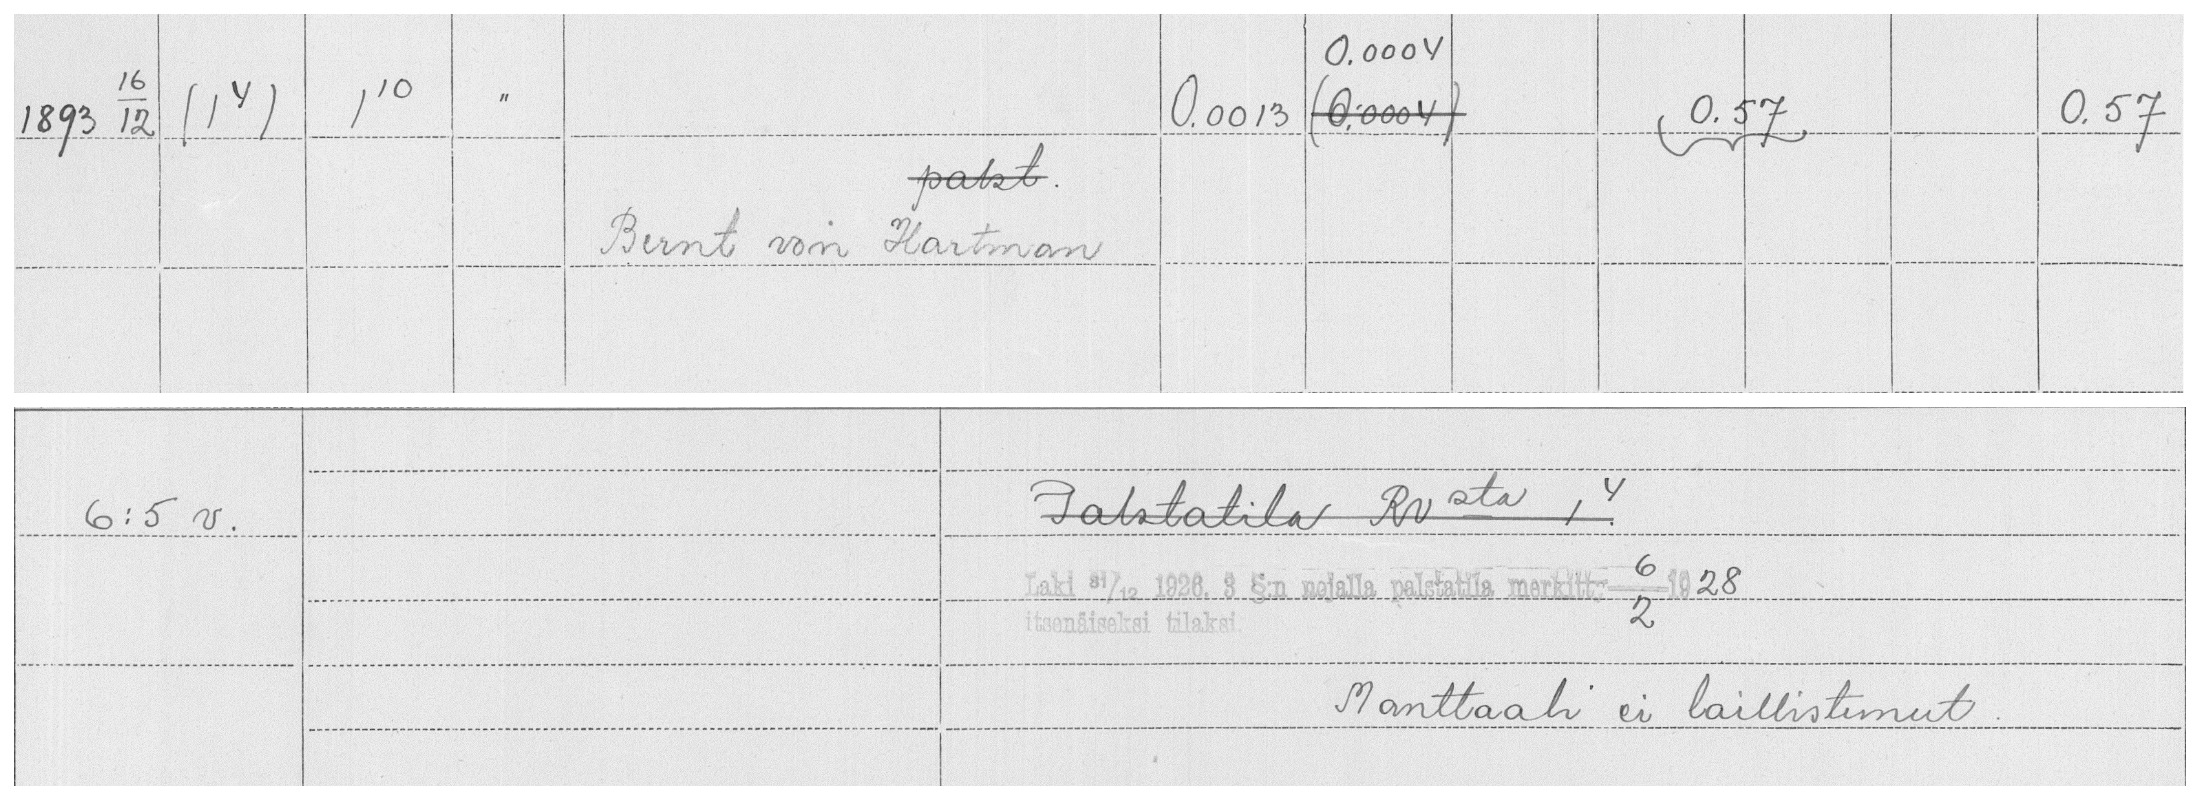 0.0004
1893 16/12 (1⁴) 1¹⁰ " 0.0013 (0.0004) 0.57 0.57
palst.
Bernt von Hartman
6:5 v. Palstatila RN sta 1⁴.
Laki 31/12 1926, 3 §:n nojalla palstatila merkitty 6/2 1928
itsenäiseksi tilaksi.
Manttaali ei laillistunut.